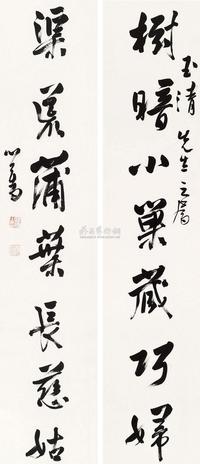 玉清先生之屬
樹暗小巢藏巧婦
渠荒蒲葉長慈姑
心畬